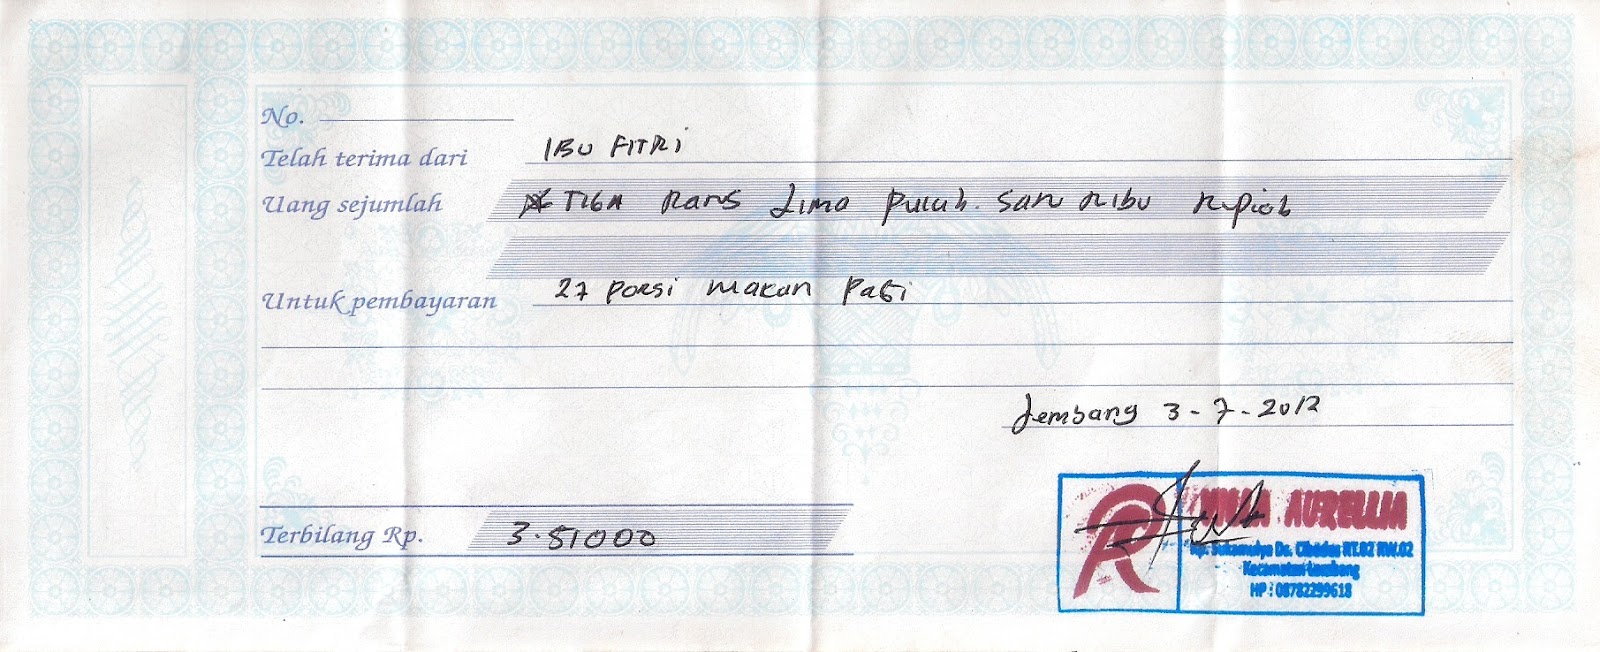 No.
Telah terima dari IBU FITRI
Uang sejumlah TIGA Rars Lima Puluh San Ribu Rupiah
Untuk pembayaran 27 Porsi Makan Pagi
Lembang 3-7-2012
Terbilang Rp. 3.51000
AURELLIA
Kp. Sukamulya Ds. Cibodas RT.02 RW.02
Kecamatan Lembang
HP : 08782299618